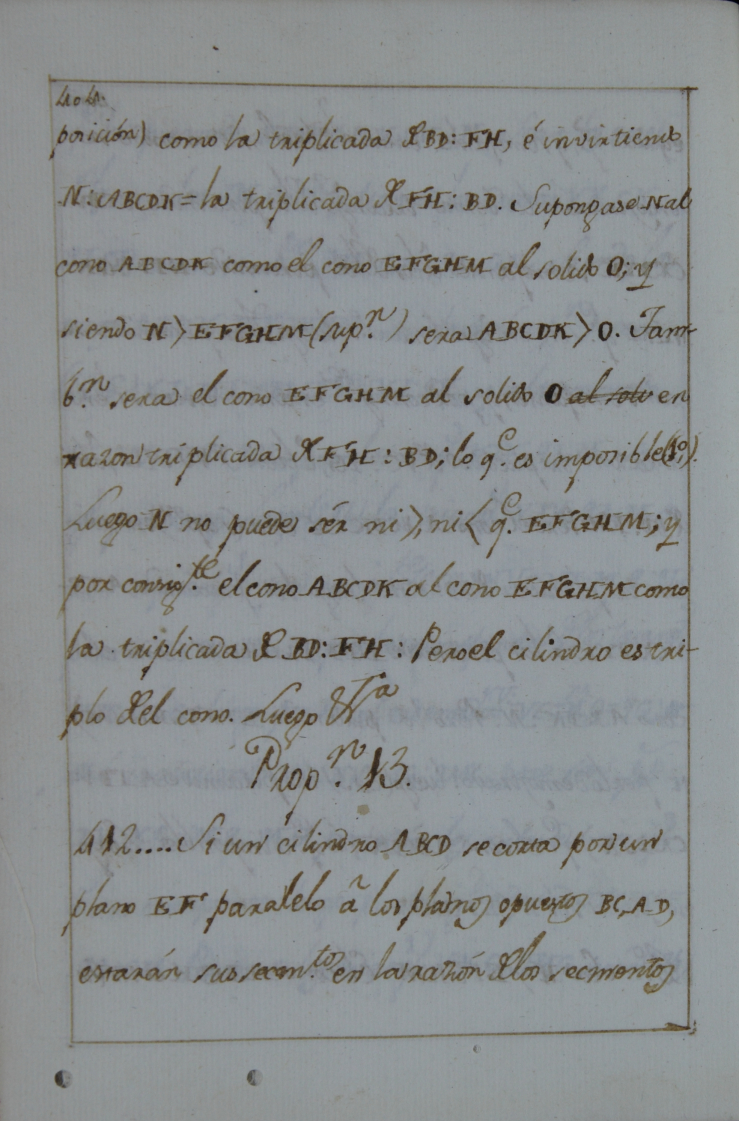 404.
posición) como la triplicada de BD: FH, é invirtiendo
N: ABCDK = la triplicada de FH: BD. Supongase N al
cono ABCDK como el cono EFGHM al solido O; y
siendo N > EFGHM (sup.n) sera ABCDK > O. Tam-
b.n sera el cono EFGHM al solido O al soli en
razon triplicada de FH: BD; lo q.e es imposible (1.o).
Luego N no puede sér ni >, ni < q.e EFGHM; y
por consig.te el cono ABCDK al cono EFGHM como
la triplicada de BD: FH: Pero el cilindro es tri-
plo del cono. Luego
Prop.n 13.
412.... Si un cilindro ABCD se corta por un
plano EF paralelo â los planos opuestos BC, AD,
estarán sus secmen.tos en la razón de los secmentos